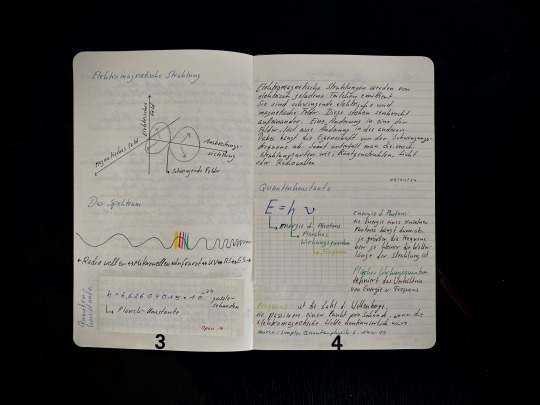 Elektromagnetische Strahlung
elektrisches
Feld
magnetisches Feld
Ausbreitungs-
richtung
schwingende Felder
Das Spektrum
h = 6,62607015 × 10⁻³⁴ Joule-
Sekunden
Planck-Konstante
Quanten-
konstante
3
Elektromagnetische Strahlungen werden von
elektrisch geladene Teilchen emittiert.
Sie sind schwingende elektrische und
magnetische Felder. Diese stehen senkrecht
aufeinander. Eine Änderung in eine der
Felder, löst eine Änderung in des anderen.
hängt die Eigenschaft von der Schwingungs-
frequenz ab. Somit unterhält man die
Strahlungsarten wie: Röntgenstrahlen, Licht
oder Radiowellen
Quantenkonstante
E = h ν
Energie d. Photons
Plancksches
Wirkungsquantum
Frequenz
Energie d. Photons:
die Energie eines einzelnen
Photons hängt davon ab,
je größer die Frequenz
bzw. je kleiner die Wellen-
länge der Strahlung ist
Plancksches Wirkungsquantum:
definiert das Verhältnis
von Energie u. Frequenz
Frequenz: ist die Zahl d. Wellenberge,
die passieren einen Punkt pro Sekunde, wenn die
elektromagnetische Welle kontinuierlich wäre
source: simply, Quantenphysik S.
4